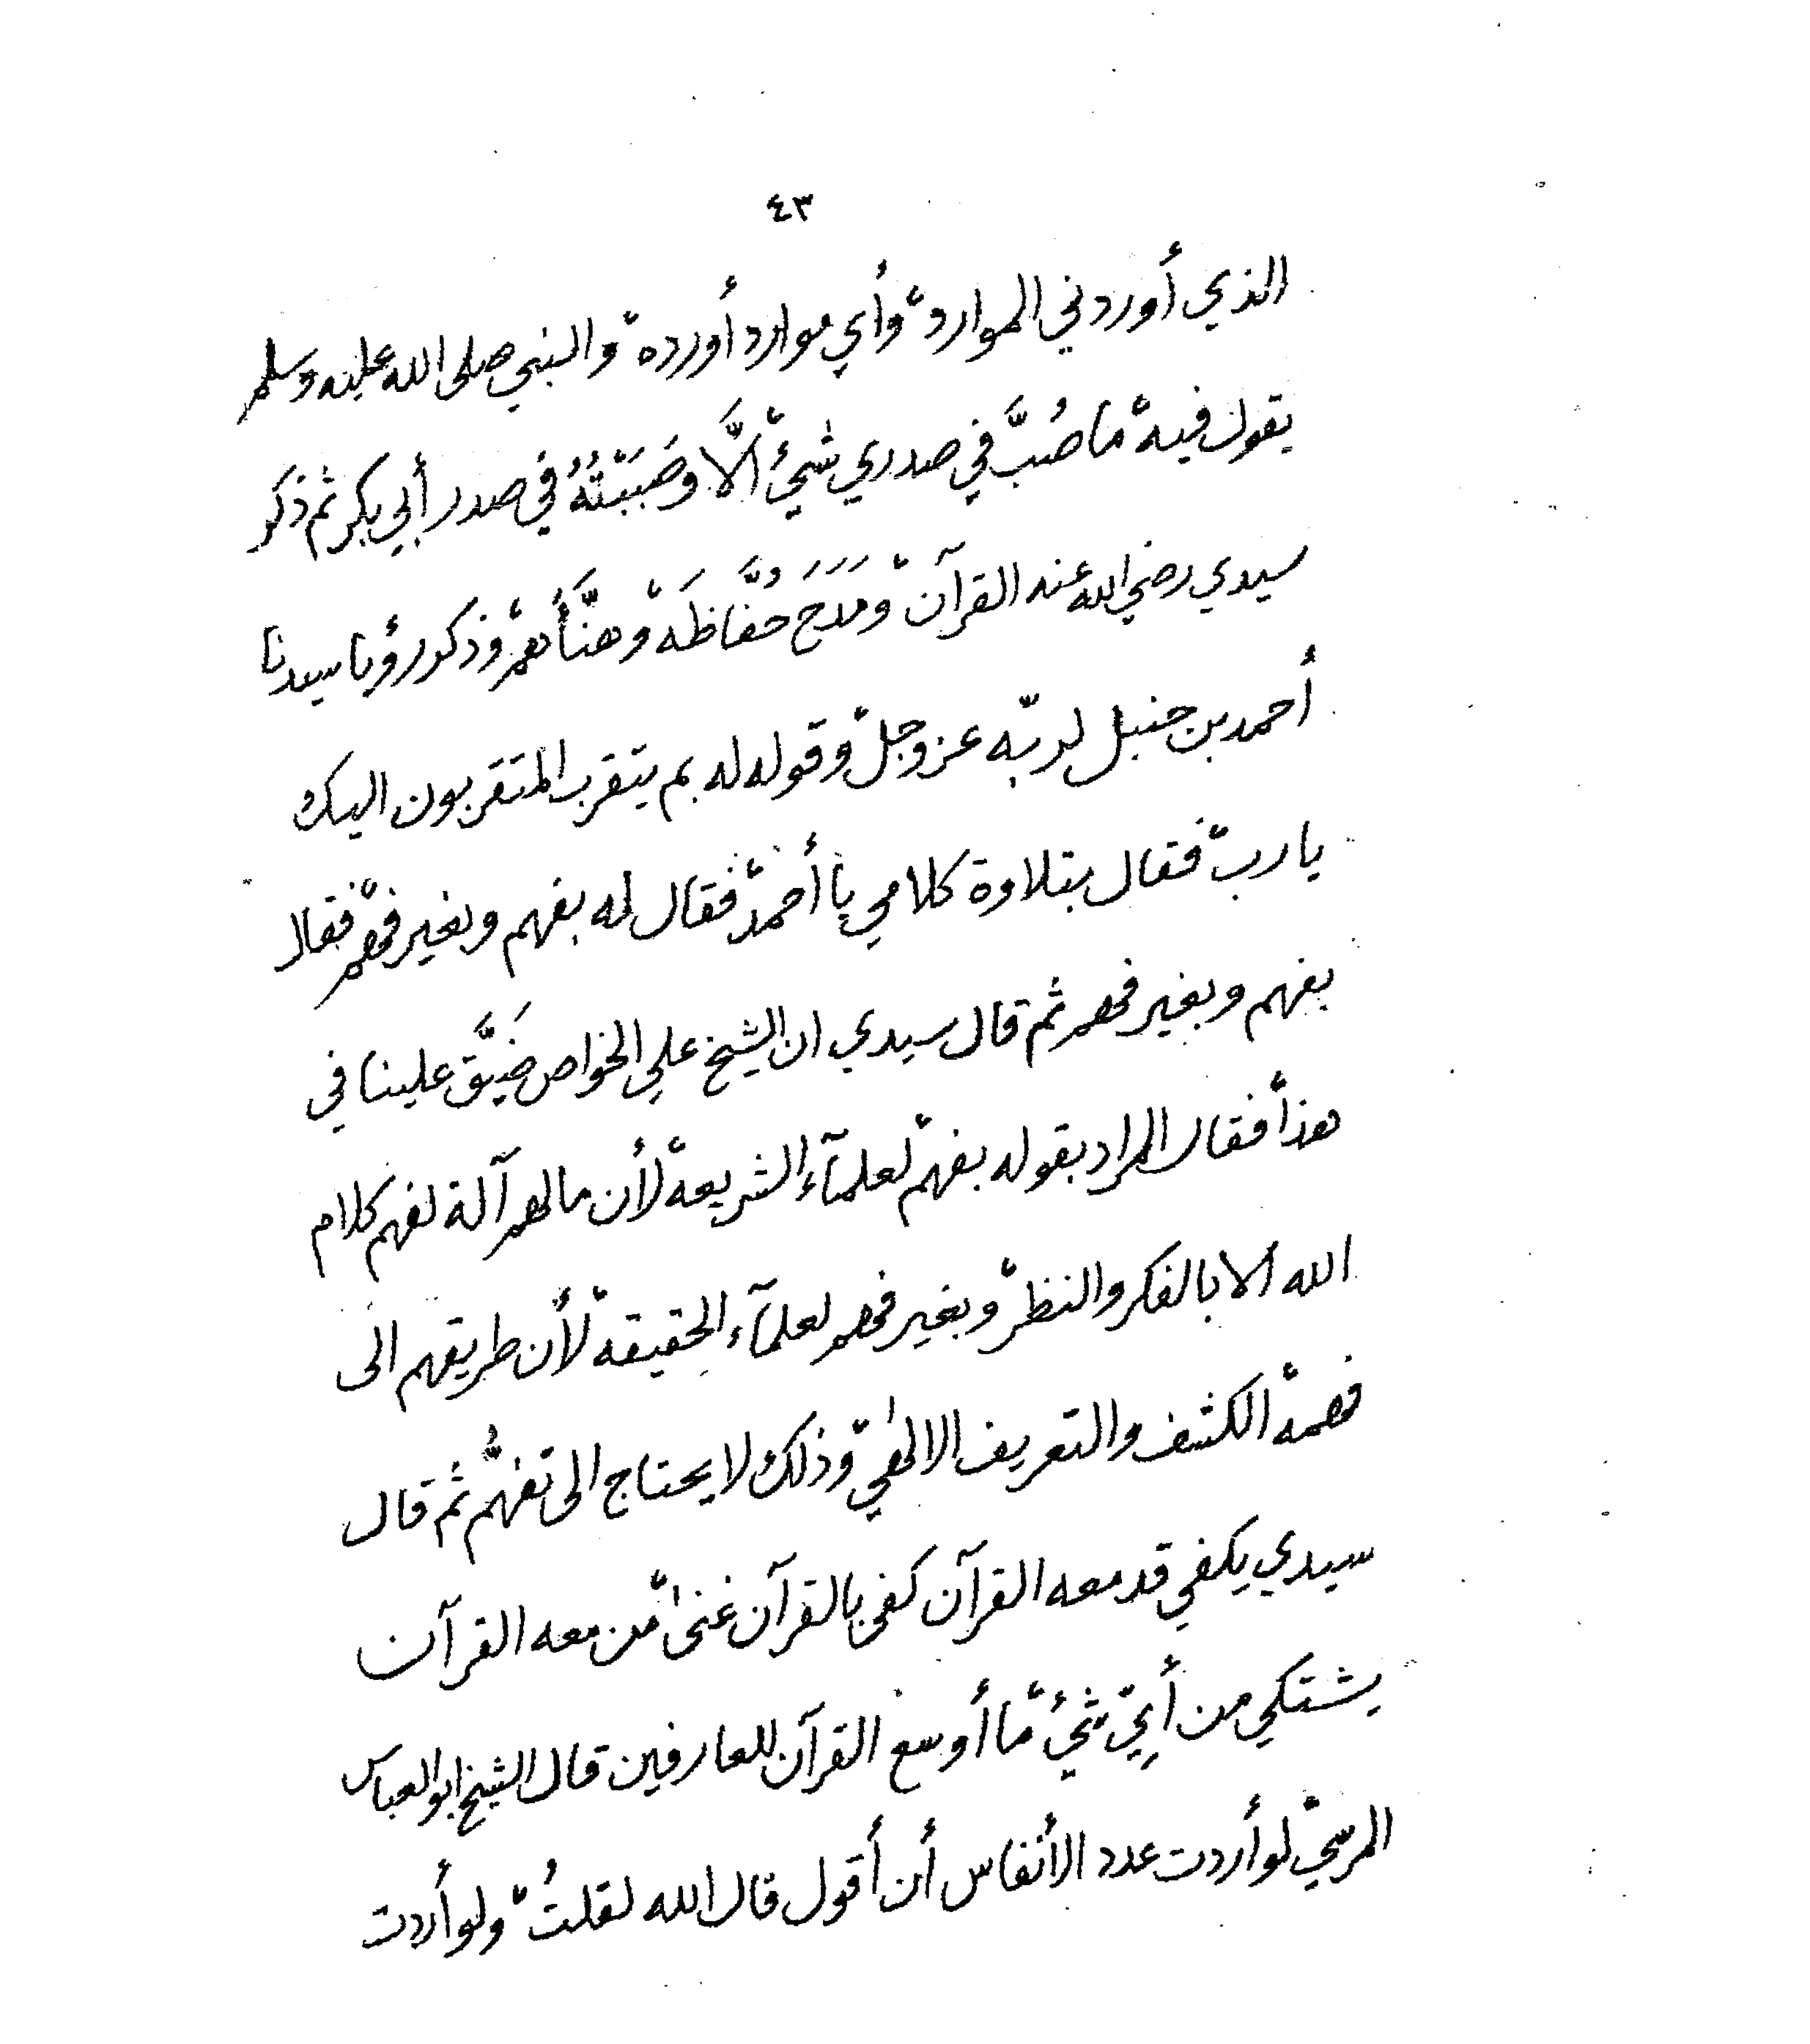 ٤٣
الذي أوردني الموارد وأي موارد أورده والنبي صلى الله عليه وسلم
يقول فيه ما صُبَّ في صدري شيئ الَّا وصَبَبْتُهُ في صدر أبي بكر ثم ذكر
سيدي رضي الله عنه القرآن ومَدَحَ حُفَّاظَه وهنَّأهم وذكر رؤيا سيدنا
أحمد بن حنبل لربّه عز وجل وقوله له بم يتقرب المتقربون اليك
يا رب فقال بتلاوة كلامي يا أحمد فقال له بفهم وبغير فهم فقال
بفهم وبغير فهم ثم قال سيدي ان الشيخ علي الخواص ضَيَّق علينا في
هذا فقال المراد بقوله بفهم لعلمآء الشريعة لأن ما لهم آلة لفهم كلام
الله الا بالفكر والنظر وبغير فهم لعلمآء الحقيقة لأن طريقهم الى
فهمه الكشف والتعريف الالهي وذلك لا يحتاج الى تفهُّم ثم قال
سيدي يكفي قد معه القرآن كفى بالقرآن غنى من معه القرآن
يشتكي من أيّ شيئ ما أوسع القرآن للعارفين قال الشيخ ابو العباس
المرسي لو أردت عدد الأنفاس أن أقول قال الله لقلتُ ولو أردت